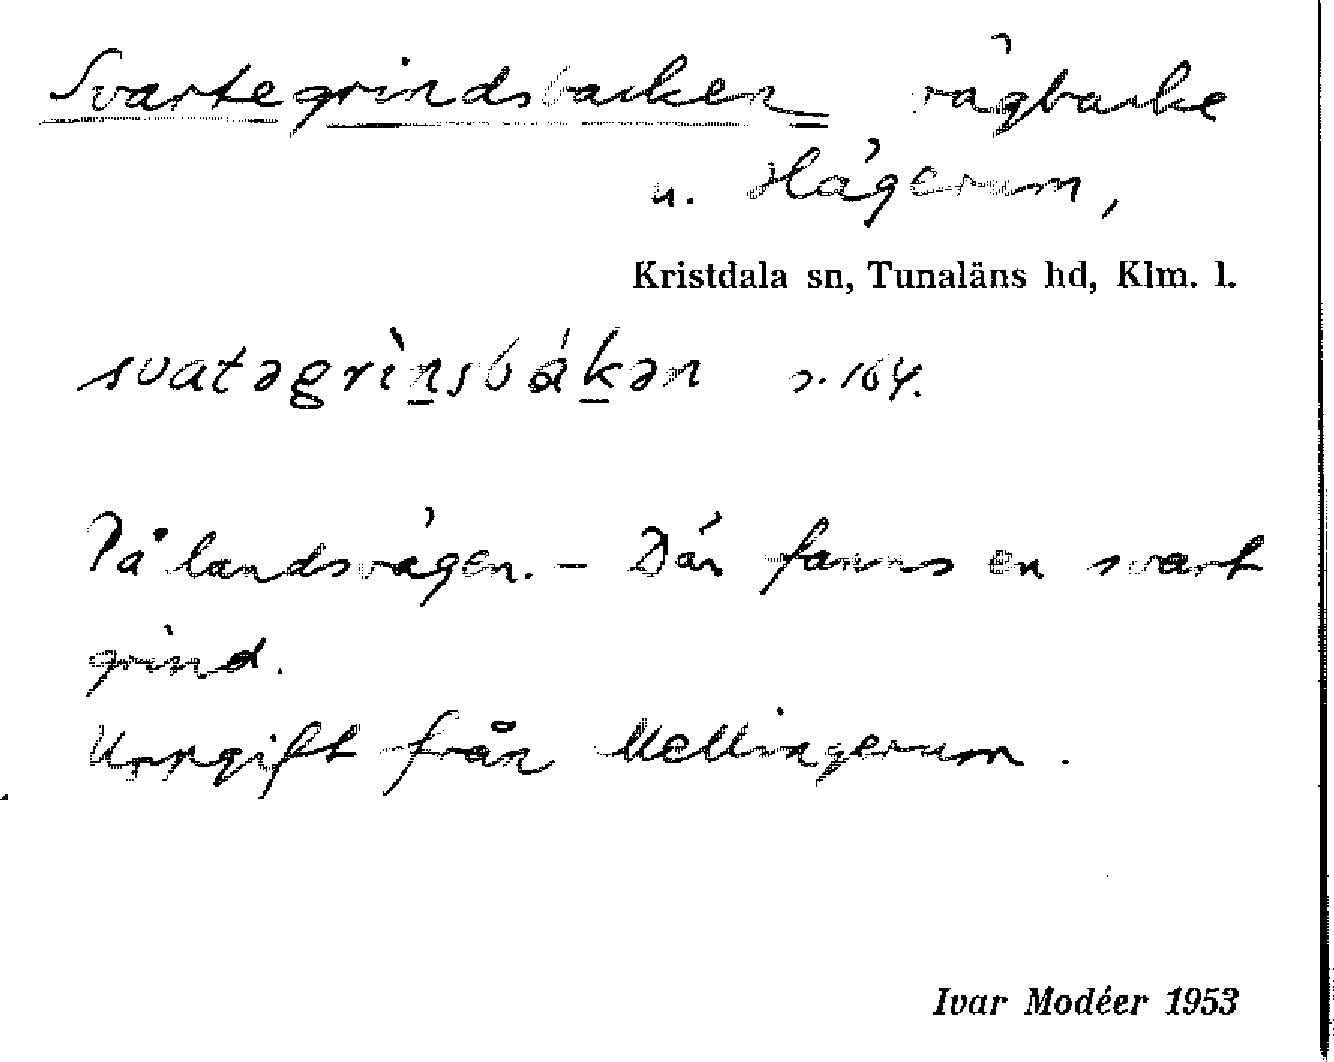 Svartegrindsbacken vägbacke
u. Hägerum,
Kristdala sn, Tunaläns hd, Klm. l.
svatəgrìṉsbáḵən s. 164.
På landsvägen. – Där fanns en svart
grind.
Uppgift från Mellingerum.
Ivar Modéer 1953